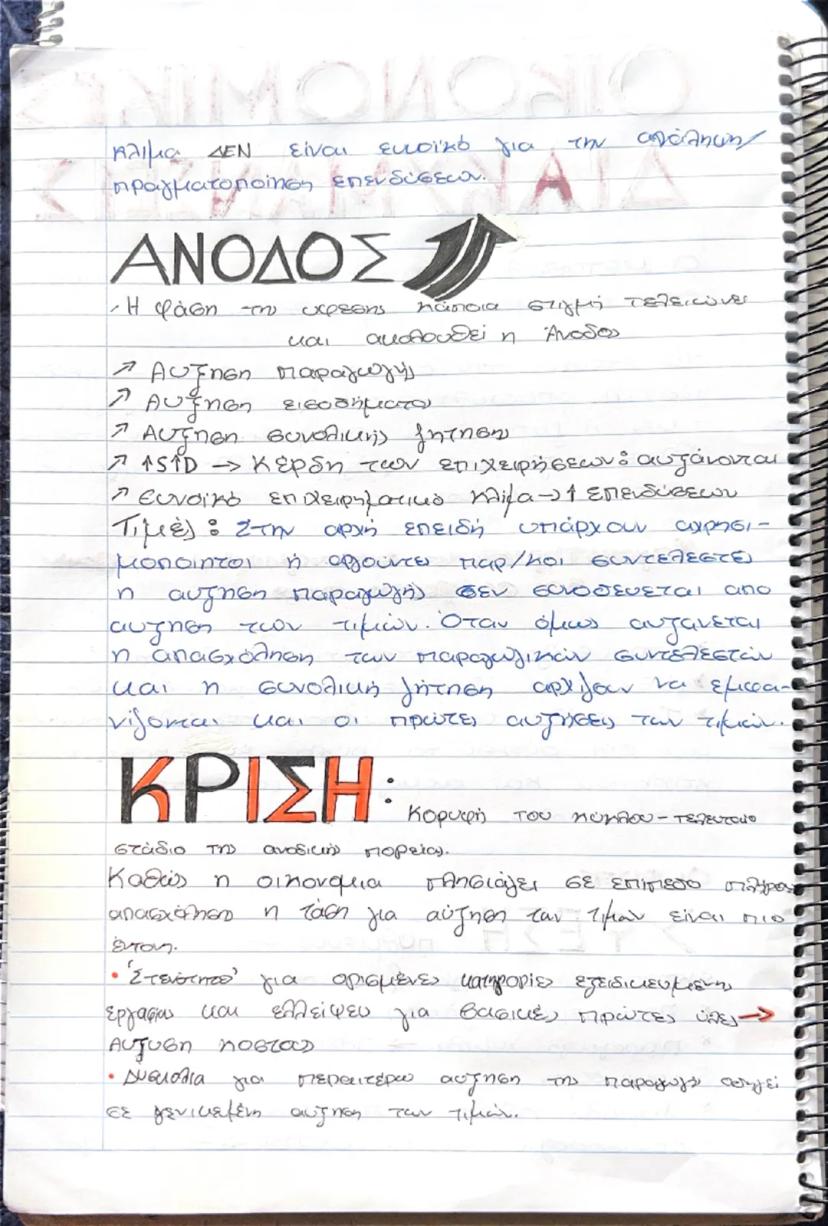 κλίμα ΔΕΝ είναι ευνοϊκό για την ανάληψη/
πραγματοποίηση επενδύσεων.
ΑΝΟΔΟΣ
- Η φάση της ύφεσης κάποια στιγμή τελειώνει
και ακολουθεί η Άνοδος
↗ Αύξηση παραγωγής
↗ Αύξηση εισοδήματος
↗ Αύξηση συνολικής ζήτησης
↗ ↑S↑D → Κέρδη των επιχειρήσεων: αυξάνονται
↗ Ευνοϊκό επιχειρηματικό κλίμα → ↑ Επενδύσεων
Τιμές: Στην αρχή επειδή υπάρχουν αχρησι-
μοποίητοι ή αργούντες παρ/κοί συντελεστές
η αύξηση παραγωγής δεν συνοδεύεται από
αύξηση των τιμών. Όταν όμως αυξάνεται
η απασχόληση των παραγωγικών συντελεστών
και η συνολική ζήτηση αρχίζουν να εμφα-
νίζονται και οι πρώτες αυξήσεις των τιμών.
ΚΡΙΣΗ:
Κορυφή του κύκλου - τελευταίο
στάδιο της ανοδικής πορείας.
Καθώς η οικονομία πλησιάζει σε επίπεδο πλήρους
απασχόλησης η τάση για αύξηση των τιμών είναι πιο
έντονη.
• 'Στενότητες' για ορισμένες κατηγορίες εξειδικευμένης
εργασίας και ελλείψεις για βασικές πρώτες ύλες →
Αύξυση κόστους
• Δυσκολία για περαιτέρω αύξηση της παραγωγής οδηγεί
σε γενικεμένη αύξηση των τιμών.